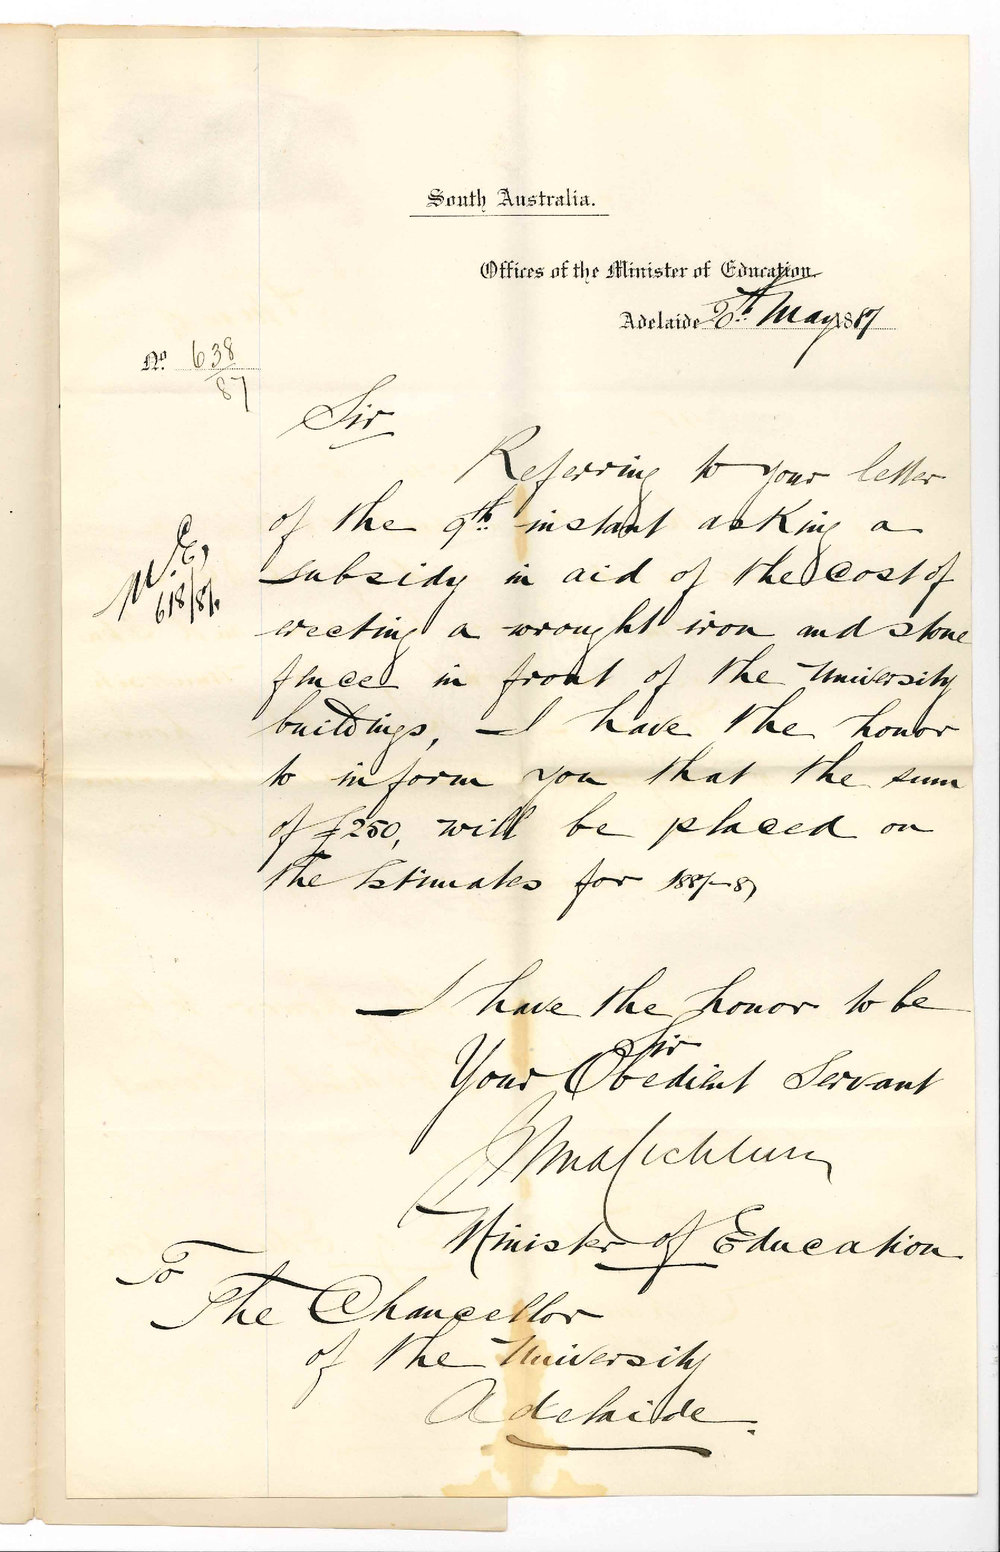 South Australia.
Offices of the Minister of Education
Adelaide 20th May 1887
No. 638
87
Sir
Referring to your letter
of the 9th instant asking a
M.E.
618/87
subsidy in aid of the cost of
erecting a wrought iron and stone
fence in front of the University
buildings, I have the honor
to inform you that the sum
of £250, will be placed on
the Estimates for 1887-8
I have the honor to be
Sir
Your Obedient Servant
Minister of Education
To
The Chancellor
of the University
Adelaide.